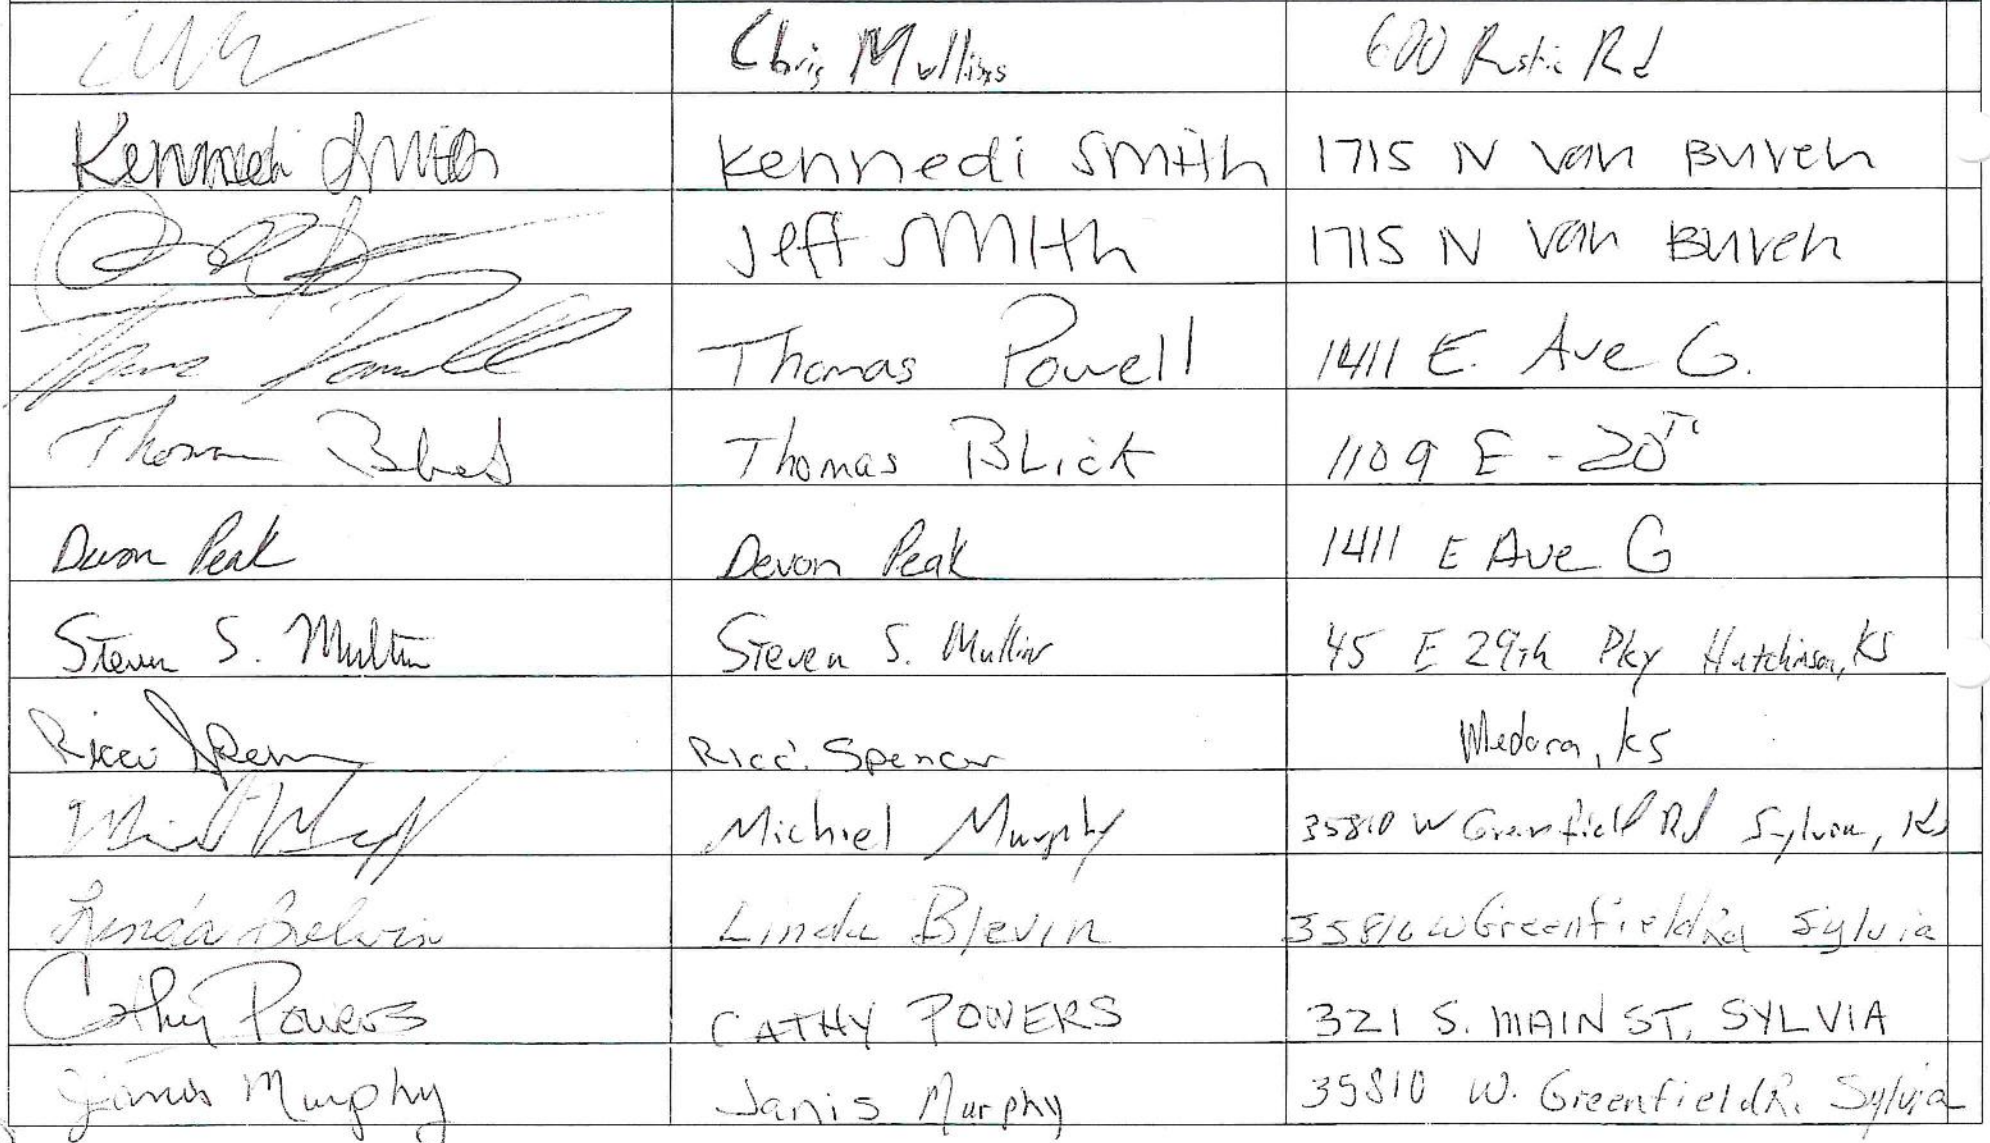 Chris Mullins 600 Rustic Rd
Kennedi Smith Kennedi Smith 1715 N Van Buren
Jeff Smith 1715 N Van Buren
Thomas Powell 1411 E. Ave G.
Thomas Blick 1109 E - 20th
Devon Peak Devon Peak 1411 E Ave G
Steven S. Mullin Steven S. Mullin 45 E 29th Pky Hutchinson, KS
Ricci Spencer Ricci Spencer Medora, KS
Michiel Murphy 35810 W Greenfield Rd Sylvia, KS
Linda Blevin 35810 W Greenfield Rd Sylvia
Cathy Powers CATHY POWERS 321 S. MAIN ST, SYLVIA
Janis Murphy Janis Murphy 35810 W. Greenfield R. Sylvia